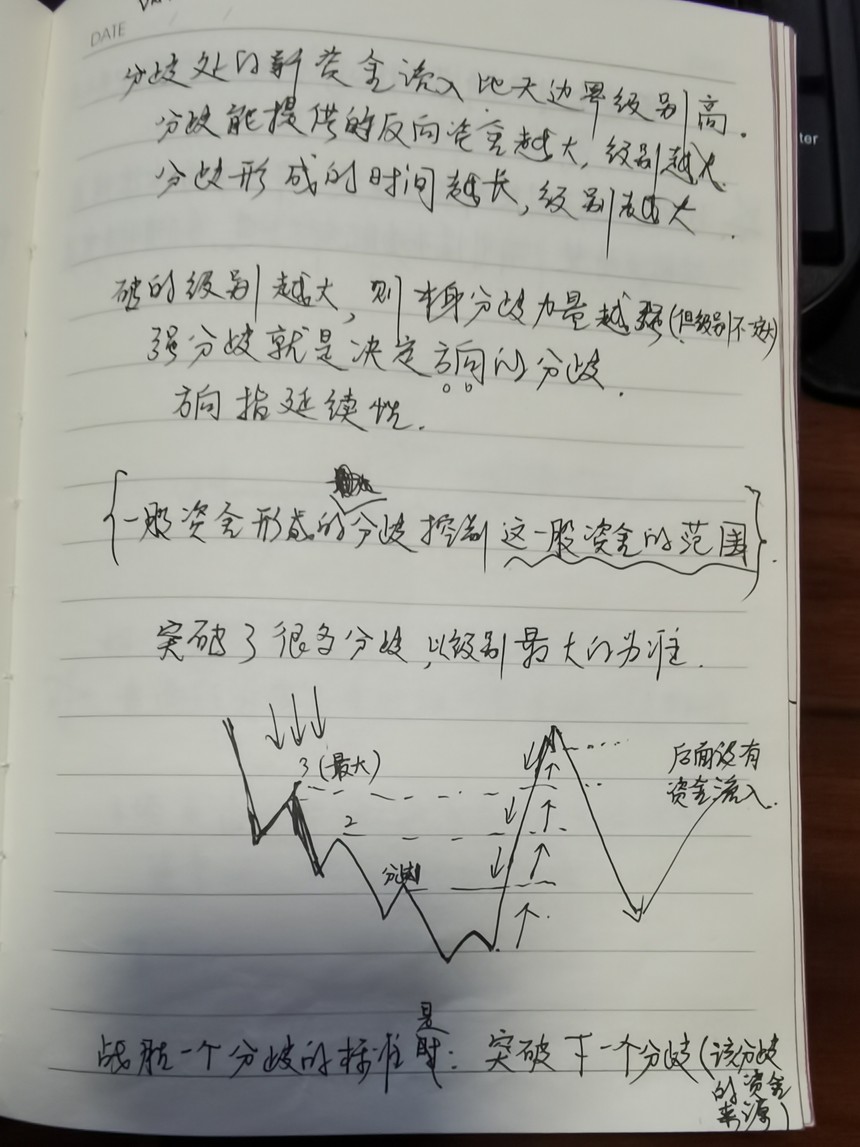 DATE
分歧处的新资金流入比天边界级别高.
分歧能提供的反向资金越大,级别越大.
分歧形成的时间越长,级别越大.
破的级别越大,则本身分歧力量越强(但级别不一定大)
强分歧就是决定方向的分歧.
方向指延续性.
{一股资金形成的分歧控制这一股资金的范围}.
突破了很多分歧,以级别最大的为准.
3(最大)
后面没有
资金流入.
2
分歧1
战胜一个分歧的标准是时:突破下一个分歧(该分歧
的资金
来源)
ter